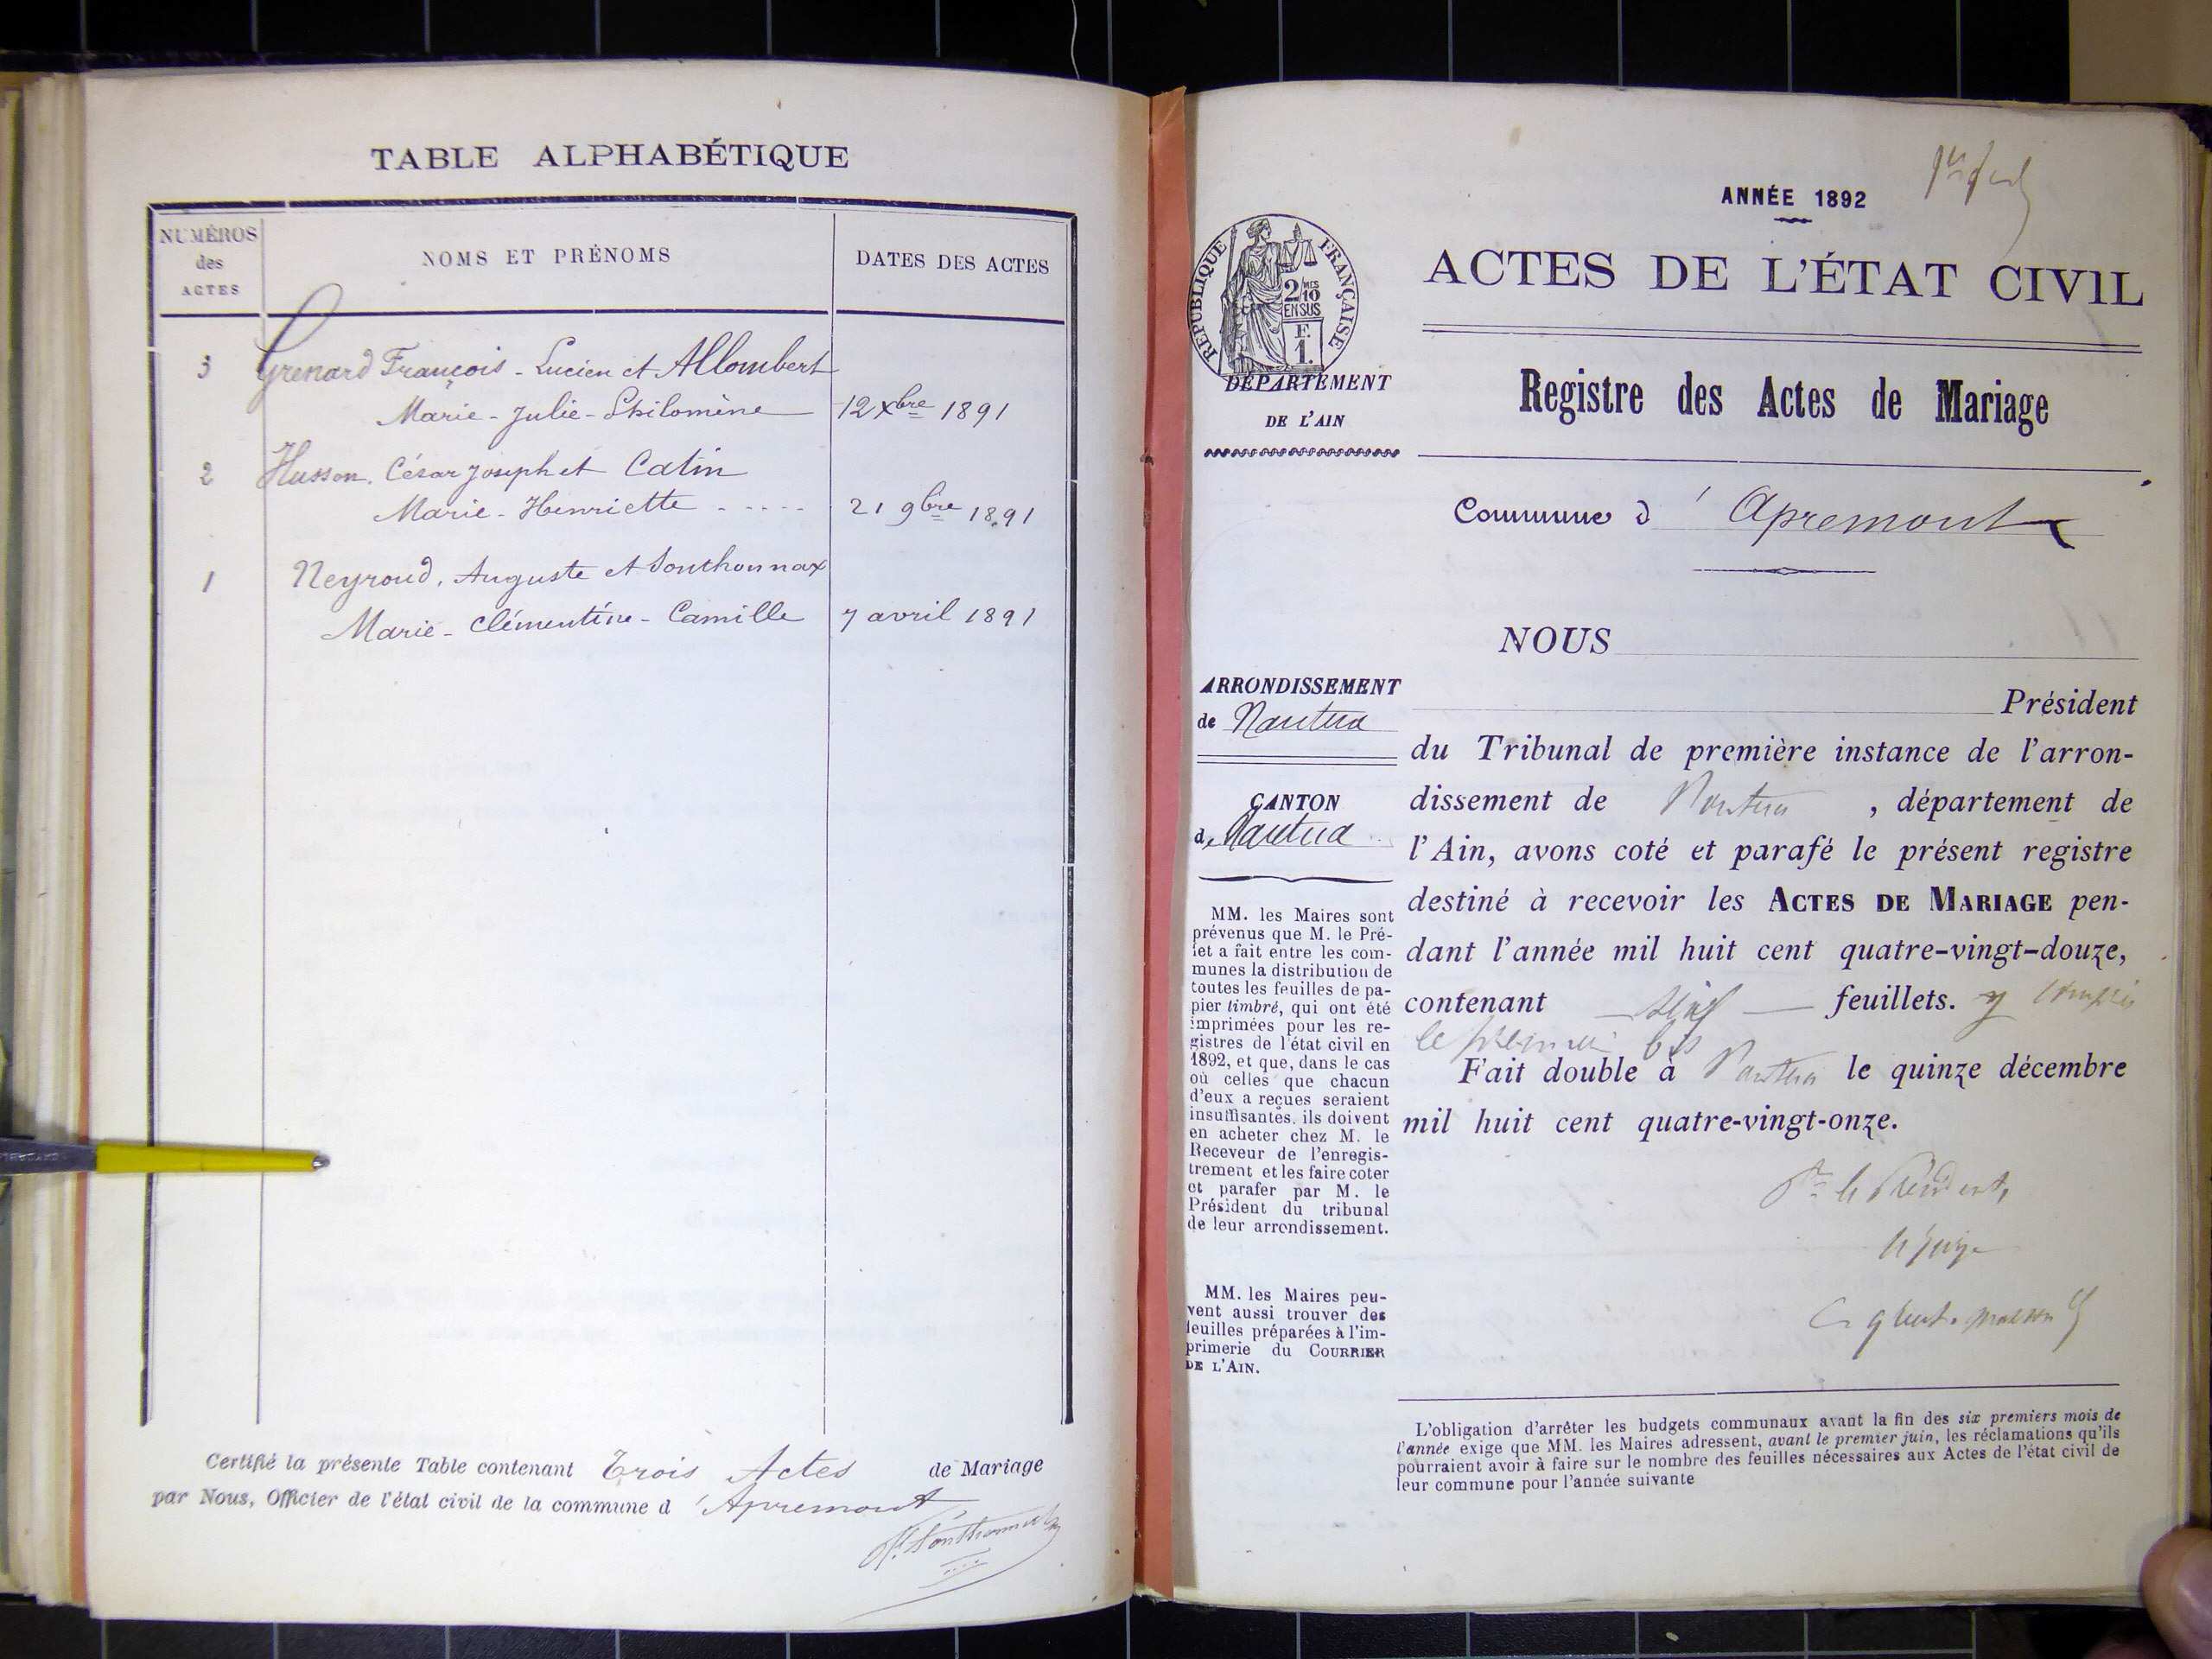 TABLE ALPHABÉTIQUE
NUMÉROS
des
ACTES
NOMS ET PRÉNOMS
DATES DES ACTES
3 Grenard François - Lucien et Allombert
Marie - Julie - Philomène 12 Xbre 1891
2 Husson, César Joseph et Catin
Marie - Henriette - - - - - 21 9bre 1891
1 Neyroud, Auguste et Sonthonnax
Marie - Clémentine - Camille 7 avril 1891
Certifié la présente Table contenant Trois Actes de Mariage
par Nous, Officier de l'état civil de la commune d'Apremont
Sonthonnax
ANNÉE 1892
RÉPUBLIQUE FRANÇAISE
2/10 MES
EN SUS
F.
1.
ACTES DE L'ÉTAT CIVIL
DÉPARTEMENT
DE L'AIN
Registre des Actes de Mariage
Commune d'Apremont
NOUS
ARRONDISSEMENT
de Nantua
CANTON
de Nantua
Président
du Tribunal de première instance de l'arron-
dissement de Nantua, département de
l'Ain, avons coté et parafé le présent registre
destiné à recevoir les ACTES DE MARIAGE pen-
dant l'année mil huit cent quatre-vingt-douze,
contenant feuillets. y compris
le premier bis
Fait double à Nantua le quinze décembre
mil huit cent quatre-vingt-onze.
Pr le Président,
le Juge
MM. les Maires sont
prévenus que M. le Pré-
fet a fait entre les com-
munes la distribution de
toutes les feuilles de pa-
pier timbré, qui ont été
imprimées pour les re-
gistres de l'état civil en
1892, et que, dans le cas
où celles que chacun
d'eux a reçues seraient
insuffisantes, ils doivent
en acheter chez M. le
Receveur de l'enregis-
trement et les faire coter
et parafer par M. le
Président du tribunal
de leur arrondissement.
MM. les Maires peu-
vent aussi trouver des
feuilles préparées à l'im-
primerie du COURRIER
DE L'AIN.
L'obligation d'arrêter les budgets communaux avant la fin des six premiers mois de
l'année exige que MM. les Maires adressent, avant le premier juin, les réclamations qu'ils
pourraient avoir à faire sur le nombre des feuilles nécessaires aux Actes de l'état civil de
leur commune pour l'année suivante